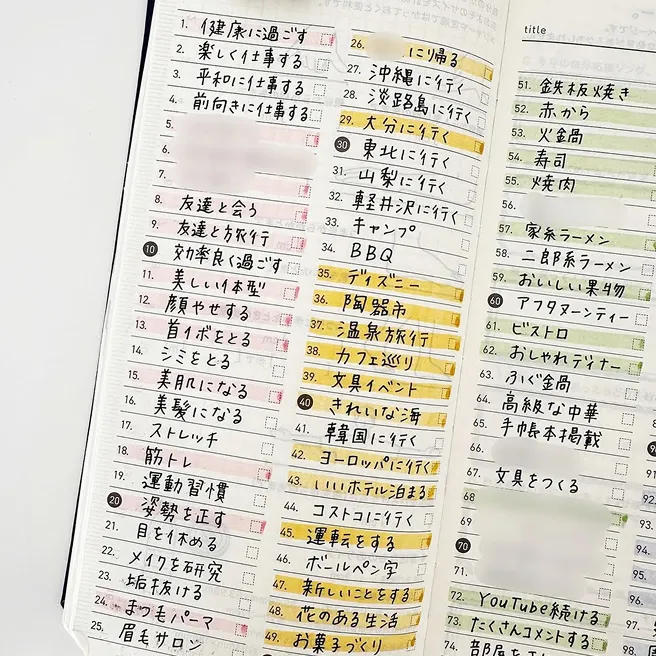 1. 健康に過ごす
2. 楽しく仕事する
3. 平和に仕事する
4. 前向きに仕事する
5.
6.
7.
8. 友達と会う
9. 友達と旅行
10 効率良く過ごす
11. 美しい体型
12. 顔やせする
13. 首イボをとる
14. シミをとる
15. 美肌になる
16. 美髪になる
17. ストレッチ
18. 筋トレ
19. 運動習慣
20 姿勢を正す
21. 目を休める
22. メイクを研究
23. 垢抜ける
24. まつ毛パーマ
25. 眉毛サロン
26. に帰る
27. 沖縄に行く
28. 淡路島に行く
29. 大分に行く
30 東北に行く
31. 山梨に行く
32. 軽井沢に行く
33. キャンプ
34. BBQ
35. ディズニー
36. 陶器市
37. 温泉旅行
38. カフェ巡り
39. 文具イベント
40 きれいな海
41. 韓国に行く
42. ヨーロッパに行く
43. いいホテル泊まる
44. コストコに行く
45. 運転をする
46. ボールペン字
47. 新しいことをする
48. 花のある生活
49. お菓子づくり
title
51. 鉄板焼き
52. 赤から
53. 火鍋
54. 寿司
55. 焼肉
56.
57. 家系ラーメン
58. 二郎系ラーメン
59. おいしい果物
60 アフタヌーンティー
61. ビストロ
62. おしゃれディナー
63. ふぐ鍋
64. 高級な中華
65. 手帳本掲載
66.
67. 文具をつくる
68
69
70
71.
72. YouTube続ける
73. たくさんコメントする
74. 部屋を